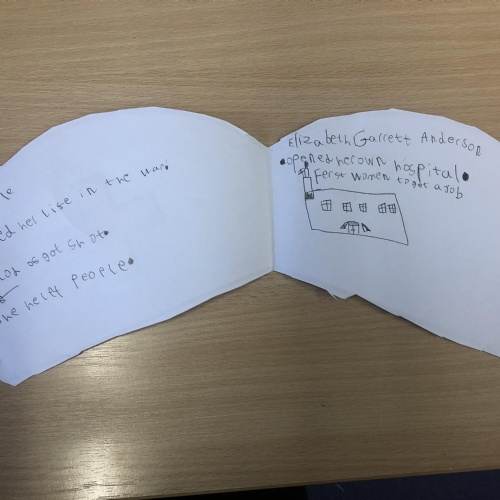 le
ed her life in the war.
got shot.
he help People.
Elizabeth Garrett Anderson
• opened her own hospital.
Ferst women to get a Job